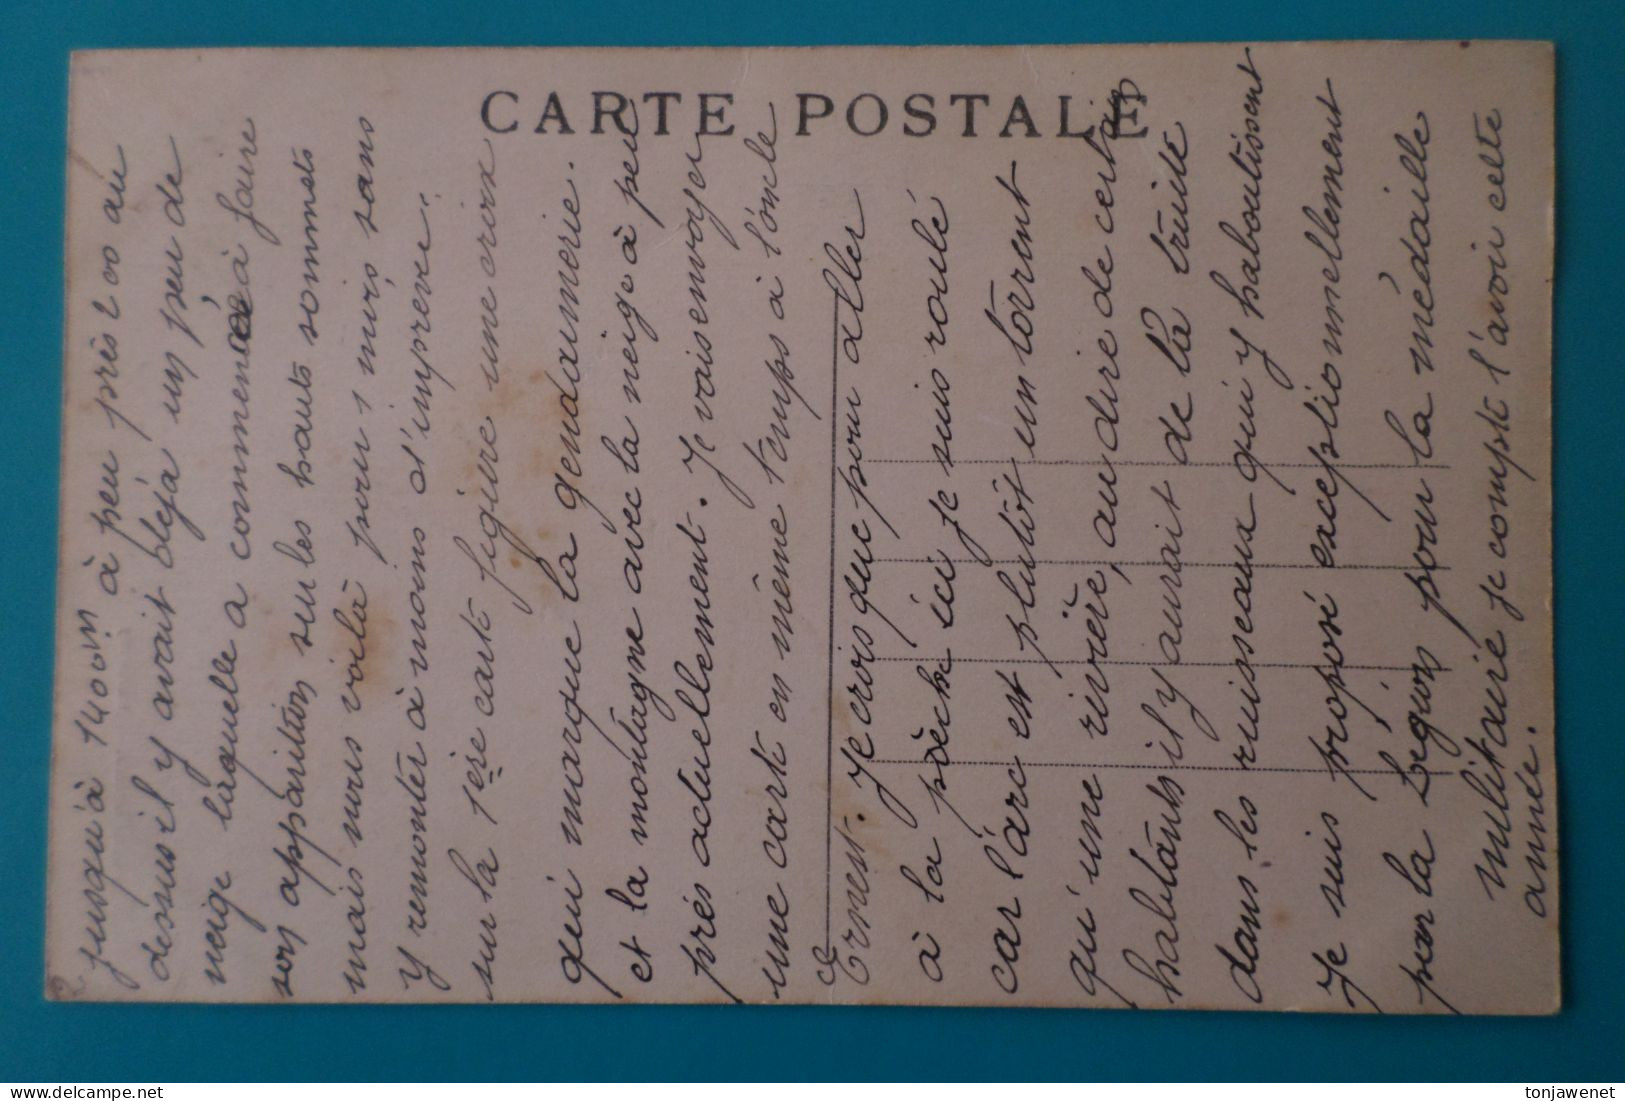 CARTE POSTALE
2
jusqu'à 1400m à peu près 200 au
dessus il y avait déjà un peu de
neige laquelle a commencé à faire
son apparition sur les hauts sommets
mais nous voilà pour 1 mois sans
y remonter à moins d'imprevu.
sur la 1ère carte figure une croix
qui marque la gendarmerie.
et la montagne avec la neige à peu
près actuellement. Je vais envoyer
une carte en même temps à l'oncle
Ernest. Je crois que pour aller
à la pêche ici je suis roulé
car l'arc est plutôt un torrent
qu'une rivière, au dire de certains
habitants il y aurait de la truite
dans les ruisseaux qui y haboutissent
Je suis proposé exceptionnellement
par la Légion pour la médaille
militaire je compte l'avoir cette
année.
tonjawenet